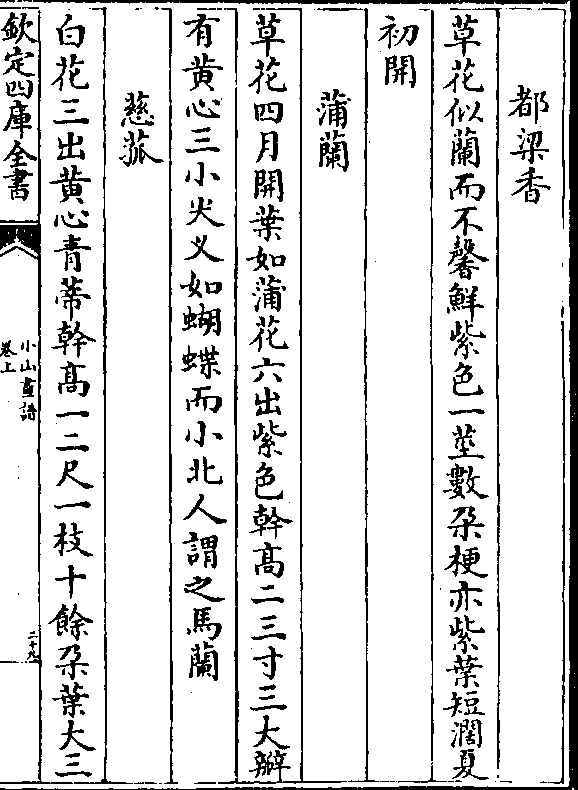 都梁香
草花似蘭而不馨鮮紫色一莖數朶梗亦紫葉短濶夏
初開
蒲蘭
草花四月開葉如蒲花六出紫色幹髙二三寸三大瓣
有黄心三小尖义如蝴蝶而小北人謂之馬蘭
慈菰
白花三出黄心青蒂幹髙一二尺一枝十餘朶葉大三
欽定四庫全書
小山畫譜
卷上
二十九